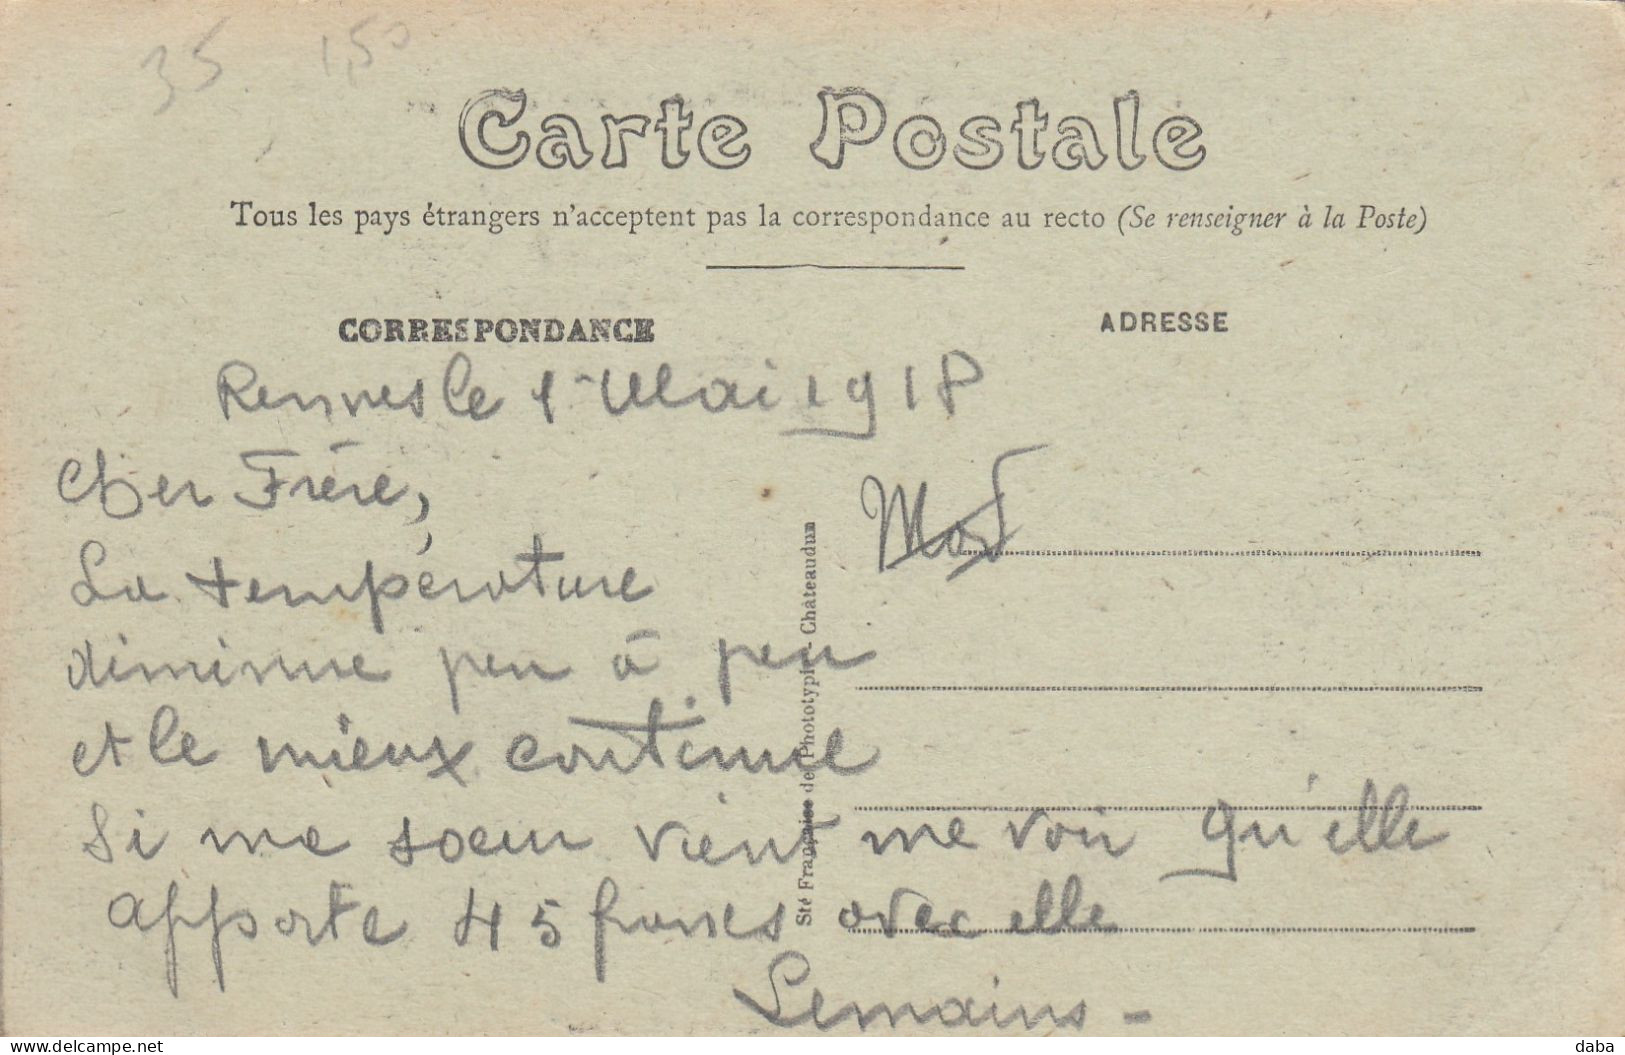 35 1,50
Carte Postale
Tous les pays étrangers n'acceptent pas la correspondance au recto (Se renseigner à la Poste)
CORRESPONDANCE
ADRESSE
Rennes le 1er Mai 1918
Cher Frère,
La température
diminue peu à peu
et le mieux continue
Si ma soeur vient me voir qu'elle
apporte 45 francs avec elle
Lemains -
Mort
Sté Française de Phototypie Châteaudun
www.delcampe.net
daba